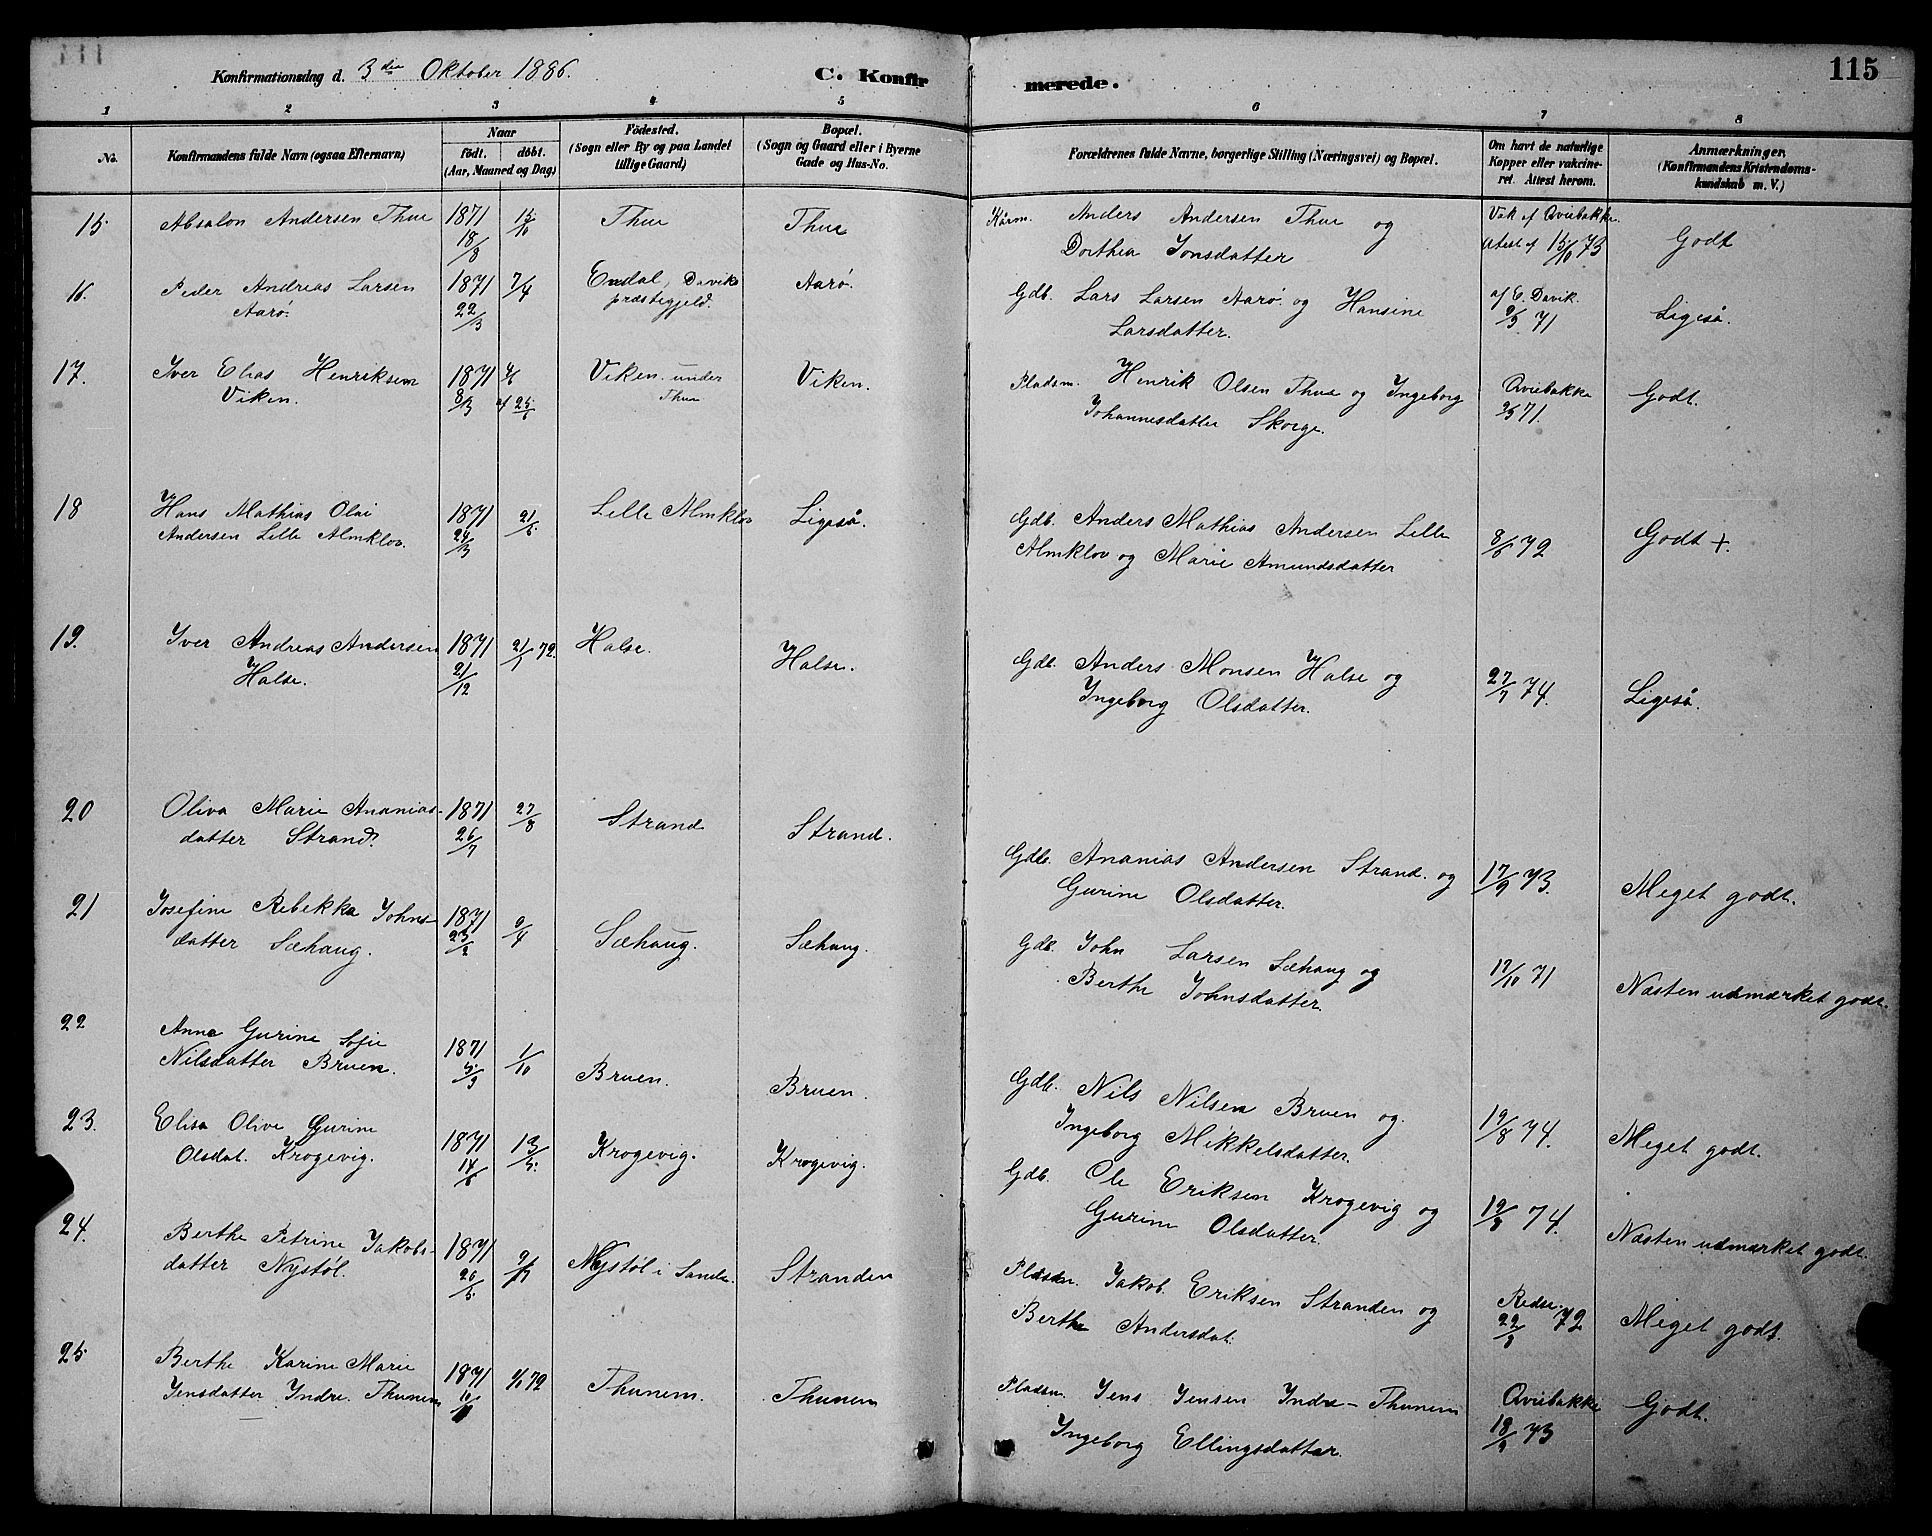 Konfirmationsdag d. 3die Oktober 1886.
C. Konfirmerede.
115
1 2 3 4 5 6 7 8
No.
Konfirmandens fulde Navn (ogsaa Efternavn)
Naar
födt. döbt.
(Aar, Maaned og Dag)
Födested.
(Sogn eller By og paa Landet
tillige Gaard)
Bopæl.
(Sogn og Gaard eller i Byerne
Gade og Hus-No.
Forældrenes fulde Navne, borgerlige Stilling (Næringsvei) og Bopæl.
Om havt de naturlige
Kopper eller vakcine-
ret. Attest herom.
Anmærkninger,
(Konfirmandens Kristendoms-
kundskab m. V.)
15. Absalon Andersen Thue 1871 18/8 15/10 Thue Thue
Kårm. Anders Andersen Thue og
Dorthea Jonsdatter
Vak af Qviebakke
Attest af 15/10 73
Godt
16. Peder Andreas Larsen
Aarø. 1871 22/3 7/4
Endal, Daviks
præstegjeld.
Aarø.
Gdb. Lars Larsen Aarø. og Hansine
Larsdatter.
af E. Davik.
9/9 71
Ligeså.
17. Iver Elias Henriksen
Viken. 1871 8/3
Viken. under
Thue
Viken.
Pladsm. Henrik Olsen Thue og Ingeborg
Johannesdatter Skorge.
Qviebakke
71.
Godt.
18 Hans Mathias Olai
Andersen Lille Almklov. 1871 24/3 21/5
Lille Almklov
Ligeså.
Gdb. Anders Mathias Andersen Lille
Almklov og Marie Amundsdatter
8/6 72
Godt +.
19. Iver Andreas Andersen
Halse. 1871 21/12 21/1 72.
Halse.
Halse.
Gdb. Anders Monsen Halse og
Ingeborg Olsdatter.
27/7 74.
Ligeså.
20 Oliva Marie Ananias-
datter Strand. 1871 26/7 27/8
Strand
Strand.
Gdb. Ananias Andersen Strand. og
Gurine Olsdatter.
17/9 73.
Meget godt.
21 Josefine Rebekka Johns-
datter Sæhaug. 1871 23/2 9/4
Sæhaug.
Sæhaug.
Gdb. John Larsen Sæhaug og
Berthe Johnsdatter.
17/10 71
Næsten udmærket godt.
22 Anne Gurine Sofie
Nilsdatter Bruen. 1871 5/9 1/10
Bruen.
Bruen.
Gdb. Nils Nilsen Bruen og.
Ingeborg Mikkelsdatter.
19/8 74.
Meget godt.
23. Elisa Olive Gurine
Olsdat. Krogevig. 1871 13/5.
Krogevig.
Krogevig.
Gdb. Ole Eriksen Krogevig og
Gurine Olsdatter.
19/8 74.
Næsten udmærket godt.
24. Berthe Petrine Jakobs-
datter Nystøl. 1871 20/5
Nystøl i Sande.
Stranden
Pladsm. Jakob Eriksen Stranden og
Berthe Andersdat.
22/8 72
Meget godt.
25 Berthe Karine Marie
Jensdatter Indre Thunem 1871 72
Thunem.
Thunem
Pladsm. Jens Jensen Indre - Thunem
Ingeborg Ellingsdatter.
Qviebakke
18/9 73
Godt.